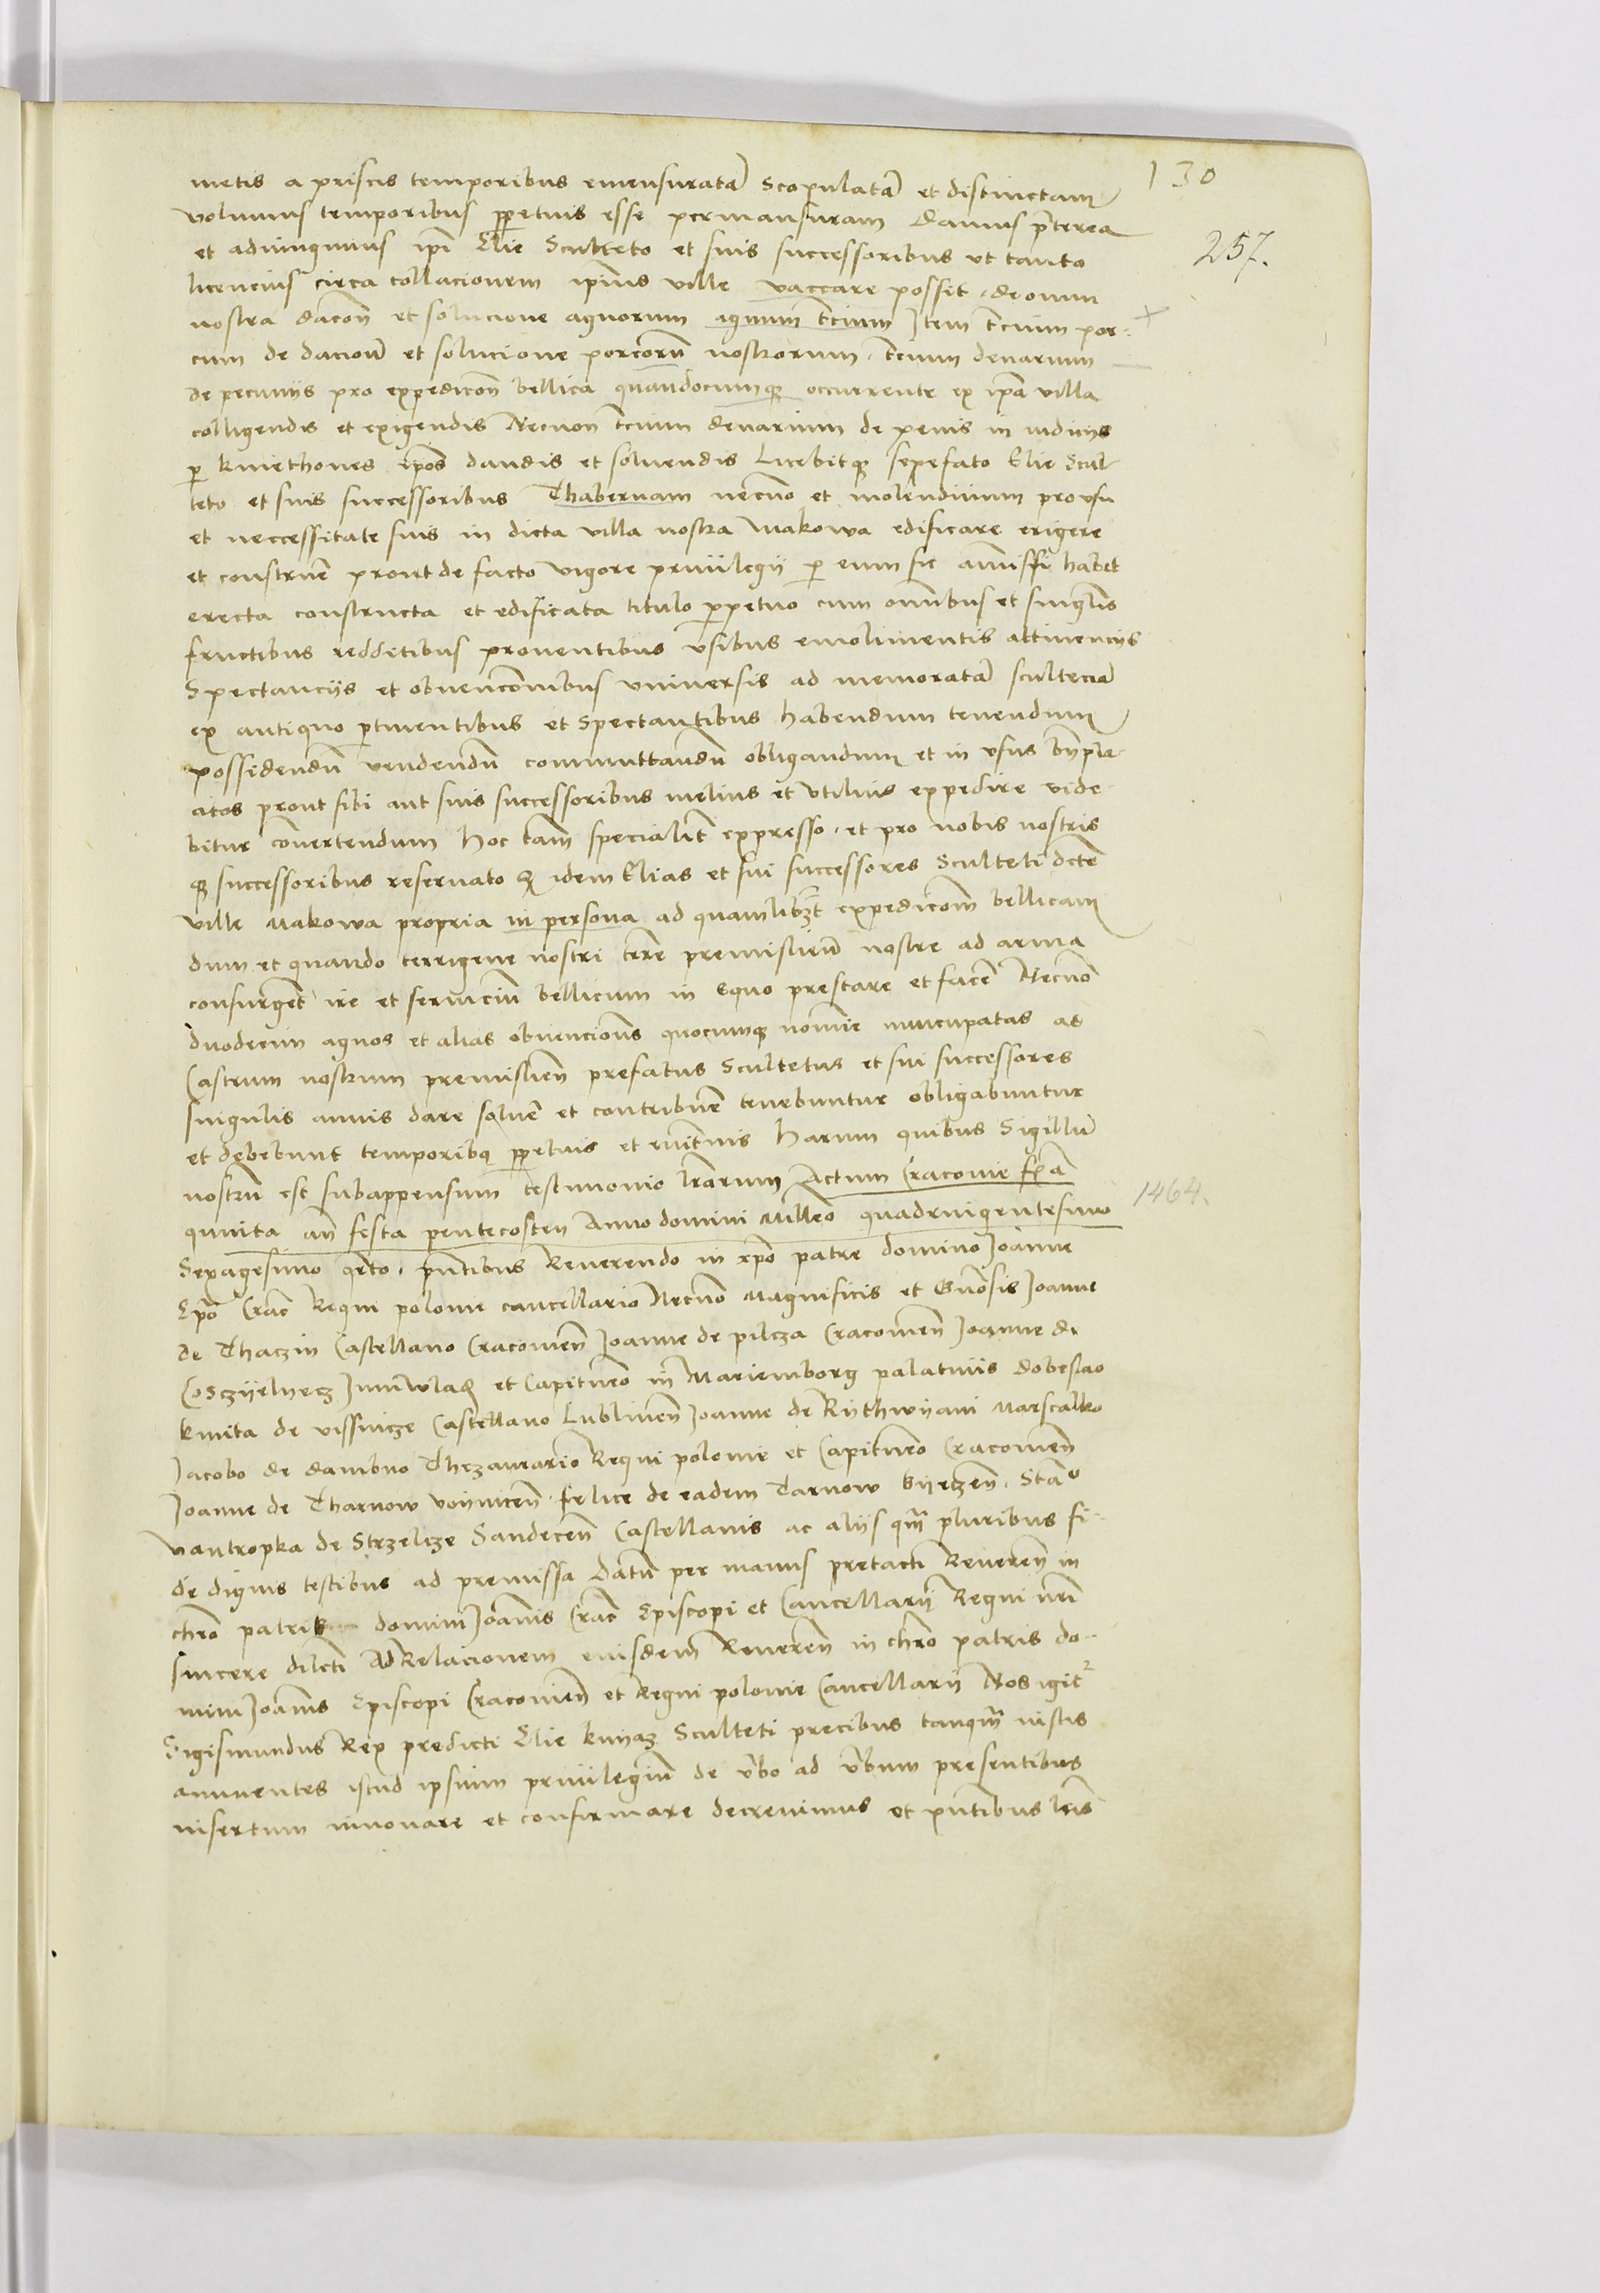 130
metis a priscis temporibus emensuratā Scopulatā et distinctam
volumus temporibus ꝑpetuis esse permansuram Damus p̄terea
257.
et adiungimus ip̄i Elie Sculteto et suis successoribus ut tanto
licencius circa collacionem ip̄ius ville vaccare possit, de omni
nostra dacōn̄ et solucione agnorum agnum t̄cium Item t̄cium por-
cum de daciōn̄ et solucione porcorū nostrorum, t̄cium denarium
de pecunijs pro expedicōn̄ bellica quandocumqȝ occurrente ex ip̄a villa
colligendis et exigendis Necnon t̄cium denarium de penis in iudicijs
ꝑ kmethones ip̄os dandis et soluendis Licebitqȝ sepefato Elie Scul-
teto et suis successoribus Thabernam necnō et molendinum pro usu
et neccessitate suis in dicta villa nostra Makowa edificare erigere
et construe͞ prout de facto vigore priuilegij ꝑ eum sic amissi habet
erecta constructa et edificata titulo ꝑpetuo cum omībus et singl̄is
fructibus redditibus prouentibus vsibus emolimentis attinencijs
Spectancijs et obuencōnibus vniuersis ad memoratā scultetiā
ex antiquo ꝑtinentibus et Spectantibus habendum tenendum
possidendū vendendū commuttandū obligandum et in vsus bn̄pla-
citos prout sibi aut suis successoribus melius et vtilius expedire vide-
bitur conuertendum Hoc tam̄ specialit̄ expresso, et pro nobis nostris
qȝ successoribus reseruato qȝ idem Elias et sui successores Sculteti dc̄te
ville Makowa propria in persona ad quamlibȝ expedicōm̄ bellicam
dum et quando terrigene nostri terre premislien̄ nostre ad arma
consurgent ire et seruiciū bellicum in Equo prestare et face͞ Necnō
duodecim agnos et alias obuenciones quocumqȝ nomīe nuncupatas ad
Castrum nostrum premislien̄ prefatus Scultetus et sui successores
singulis annis dare solue͞ et contribue͞ tenebuntur obligabuntur
et debebunt temporibȝ ꝑpetuis et euit̄nis Harum quibus Sigillū
nostrū est subappensum testimonio lr̄arum Actum Cracouie fr̄ia
1464.
quinta an̄ festa pentecosten Anno domini Milleo͞ quadringentesimo
Sexagesimo qr̄to, pn̄tibus Reuerendo in xp̄o patre domino Joanne
Ep̄o Crac̄ Regni polonie cancellario Necnō Magnificis et Gn̄osis Joanne
de Thaczin Castellano Cracouien̄ Joanne de pilcza Cracouien̄ Joanne de
Cosczyelyecz Juniwladȝ et Capitn̄eo in Mariemborg palatinis dobeslao
kmita de vissnicze Castellano Lublinen̄ Joanne de Rythwyani Marscalko
Jacobo de dambno Thezaurario Regni polonie et Capitn̄eo Cracouien̄
Joanne de Tharnow voinicen̄ felice de eadem Tarnow byeczen̄, Stao͞
vantropka de Strzelcze Sandecen̄ Castellanis ac alijs qm̄ pluribus fi-
de dignis testibus ad premissa Datū per manus pretacti Reueren̄ in
chro͞ patris domini Joannis Crac̄ Episcopi et Cancellarij Regni nr̄i
sincere dilc̄ti Ad Relacionem eiusdem Reueren̄ in chro͞ patris do-
mini Joannis Episcopi Cracouien̄ et Regni polonie Cancellarij Nos igit̄
Sigismundus Rex predicti Elie knyaz Sculteti precibus tanqm̄ iustis
annuentes istud ipsum priuilegiū de v̄bo ad v̄bum presentibus
insertum innouare et confirmare decreuimus et pn̄tibus lr̄is